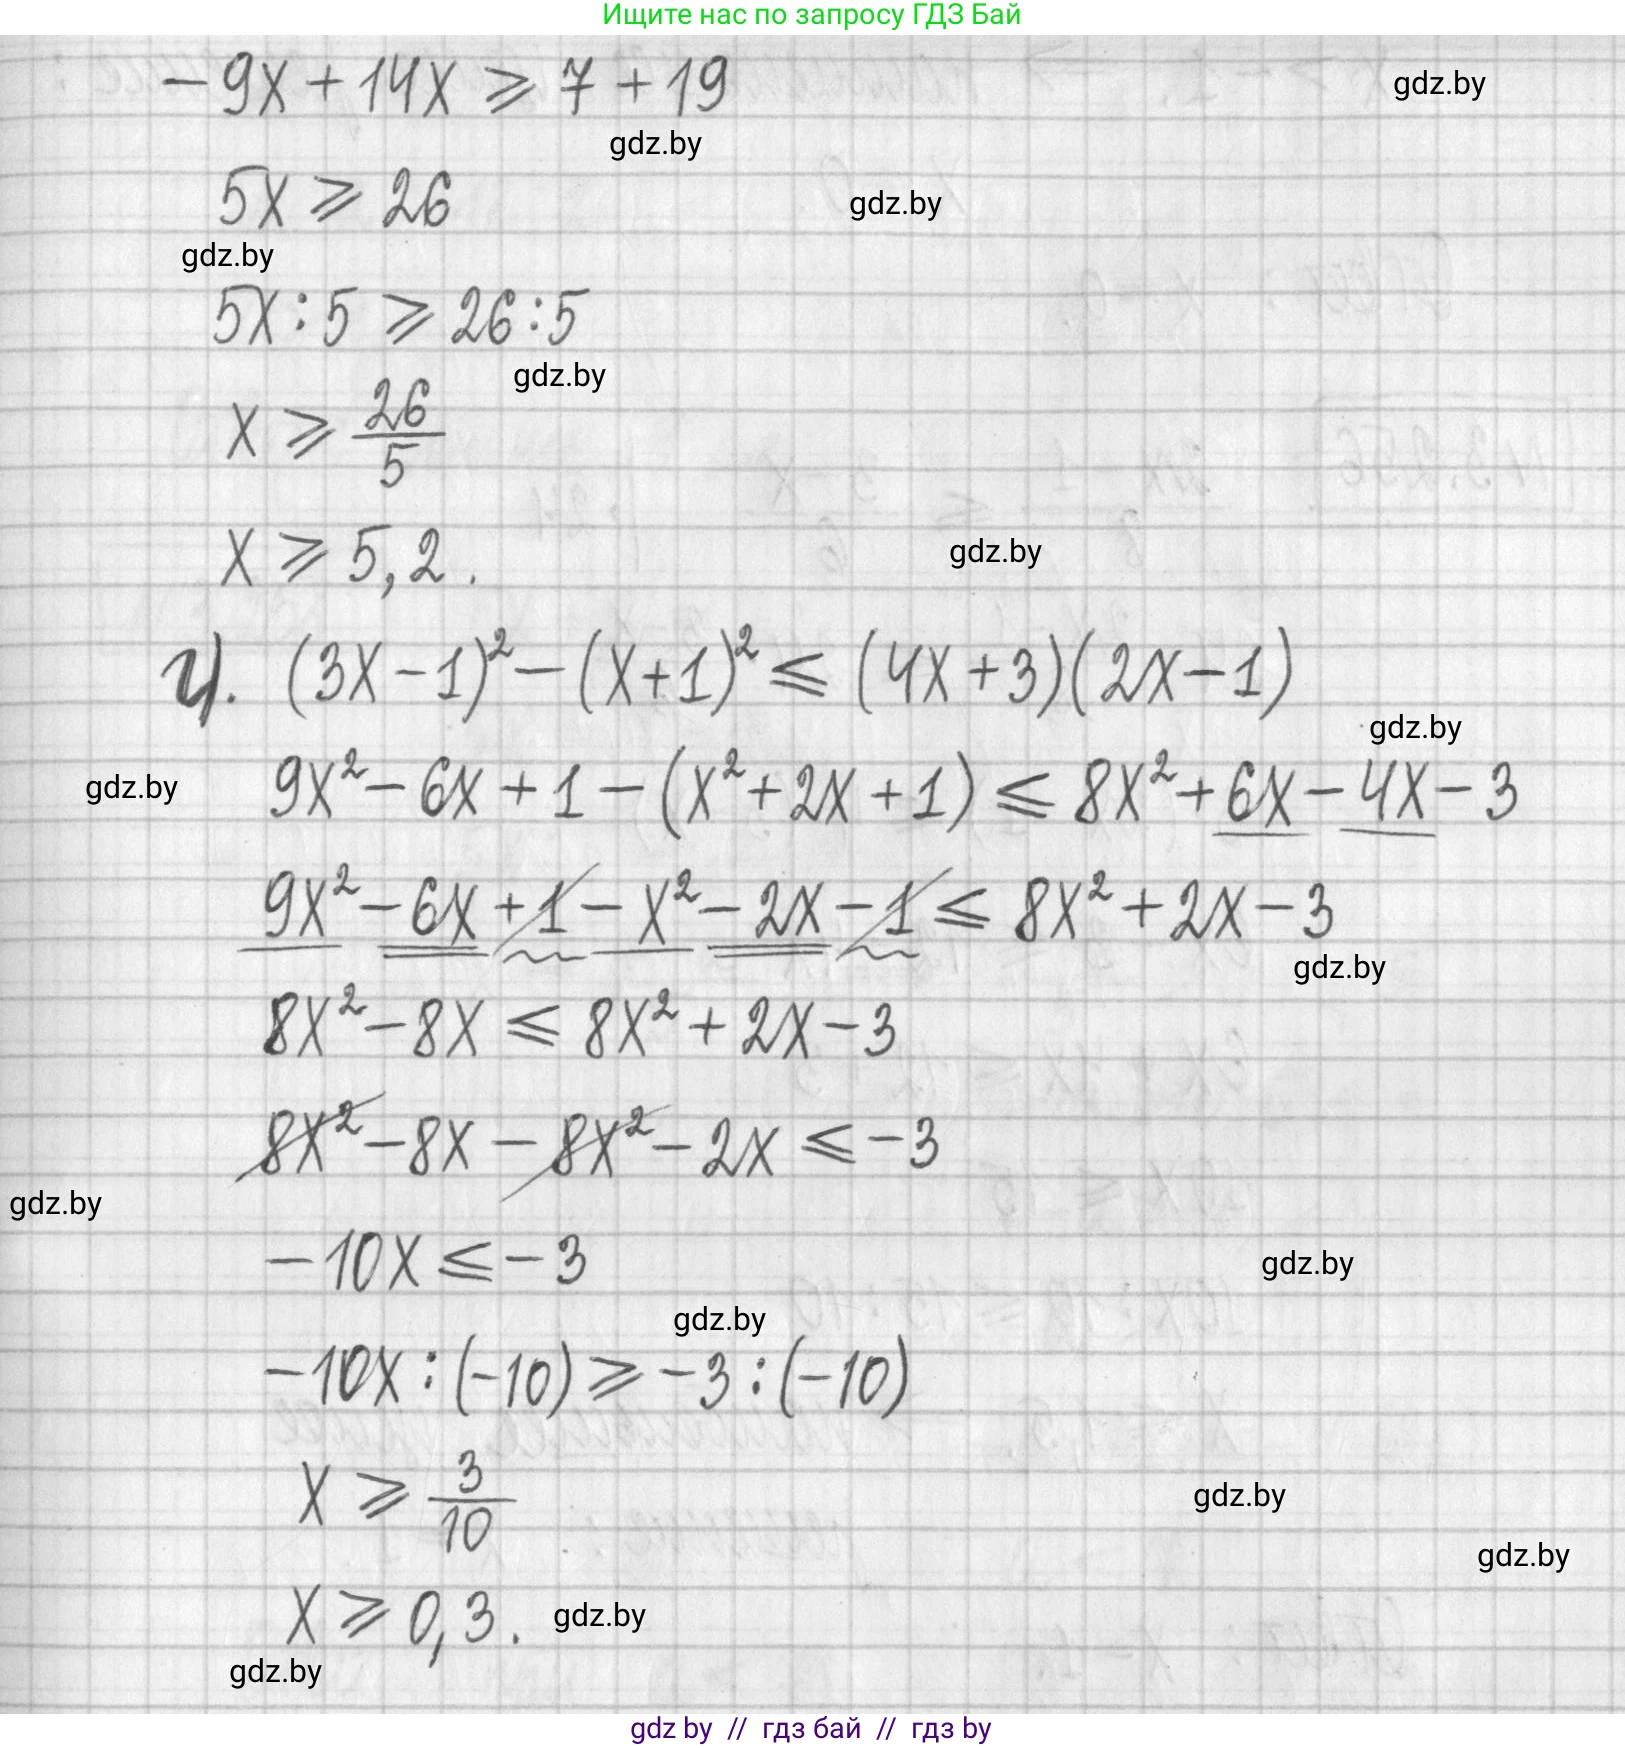 Ищите нас по запросу ГДЗ Бай
-9x + 14x ⩾ 7 + 19
gdz.by
gdz.by
5x ⩾ 26
gdz.by
gdz.by
5x : 5 ⩾ 26 : 5
gdz.by
x ⩾ 26/5
x ⩾ 5,2.
gdz.by
г). (3x - 1)² - (x + 1)² ⩽ (4x + 3)(2x - 1)
gdz.by
9x² - 6x + 1 - (x² + 2x + 1) ⩽ 8x² + 6x - 4x - 3
gdz.by
9x² - 6x + 1 - x² - 2x - 1 ⩽ 8x² + 2x - 3
gdz.by
8x² - 8x ⩽ 8x² + 2x - 3
8x² - 8x - 8x² - 2x ⩽ -3
gdz.by
-10x ⩽ -3
gdz.by
gdz.by
-10x : (-10) ⩾ -3 : (-10)
x ⩾ 3/10
gdz.by
gdz.by
x ⩾ 0,3.
gdz.by
gdz.by
gdz by // гдз бай // гдз by